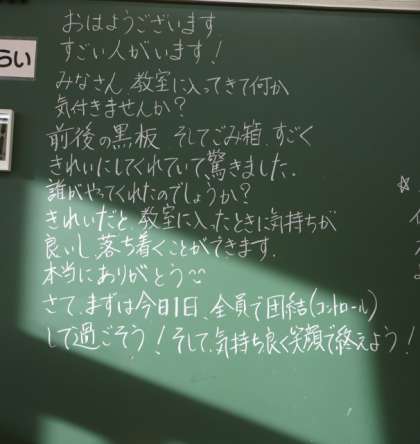 おはようございます
すごい人がいます!
みなさん、教室に入ってきて何か
気付きませんか?
前後の黒板、そしてごみ箱、すごく
きれいにしてくれていて、驚きました。
誰がやってくれたのでしょうか?
きれいだと、教室に入ったときに気持ちが
良いし、落ち着くことができます。
本当にありがとう
さて、まずは今日1日、全員で団結(コントロール)
して過ごそう!そして、気持ち良く笑顔で終えよう!
らい